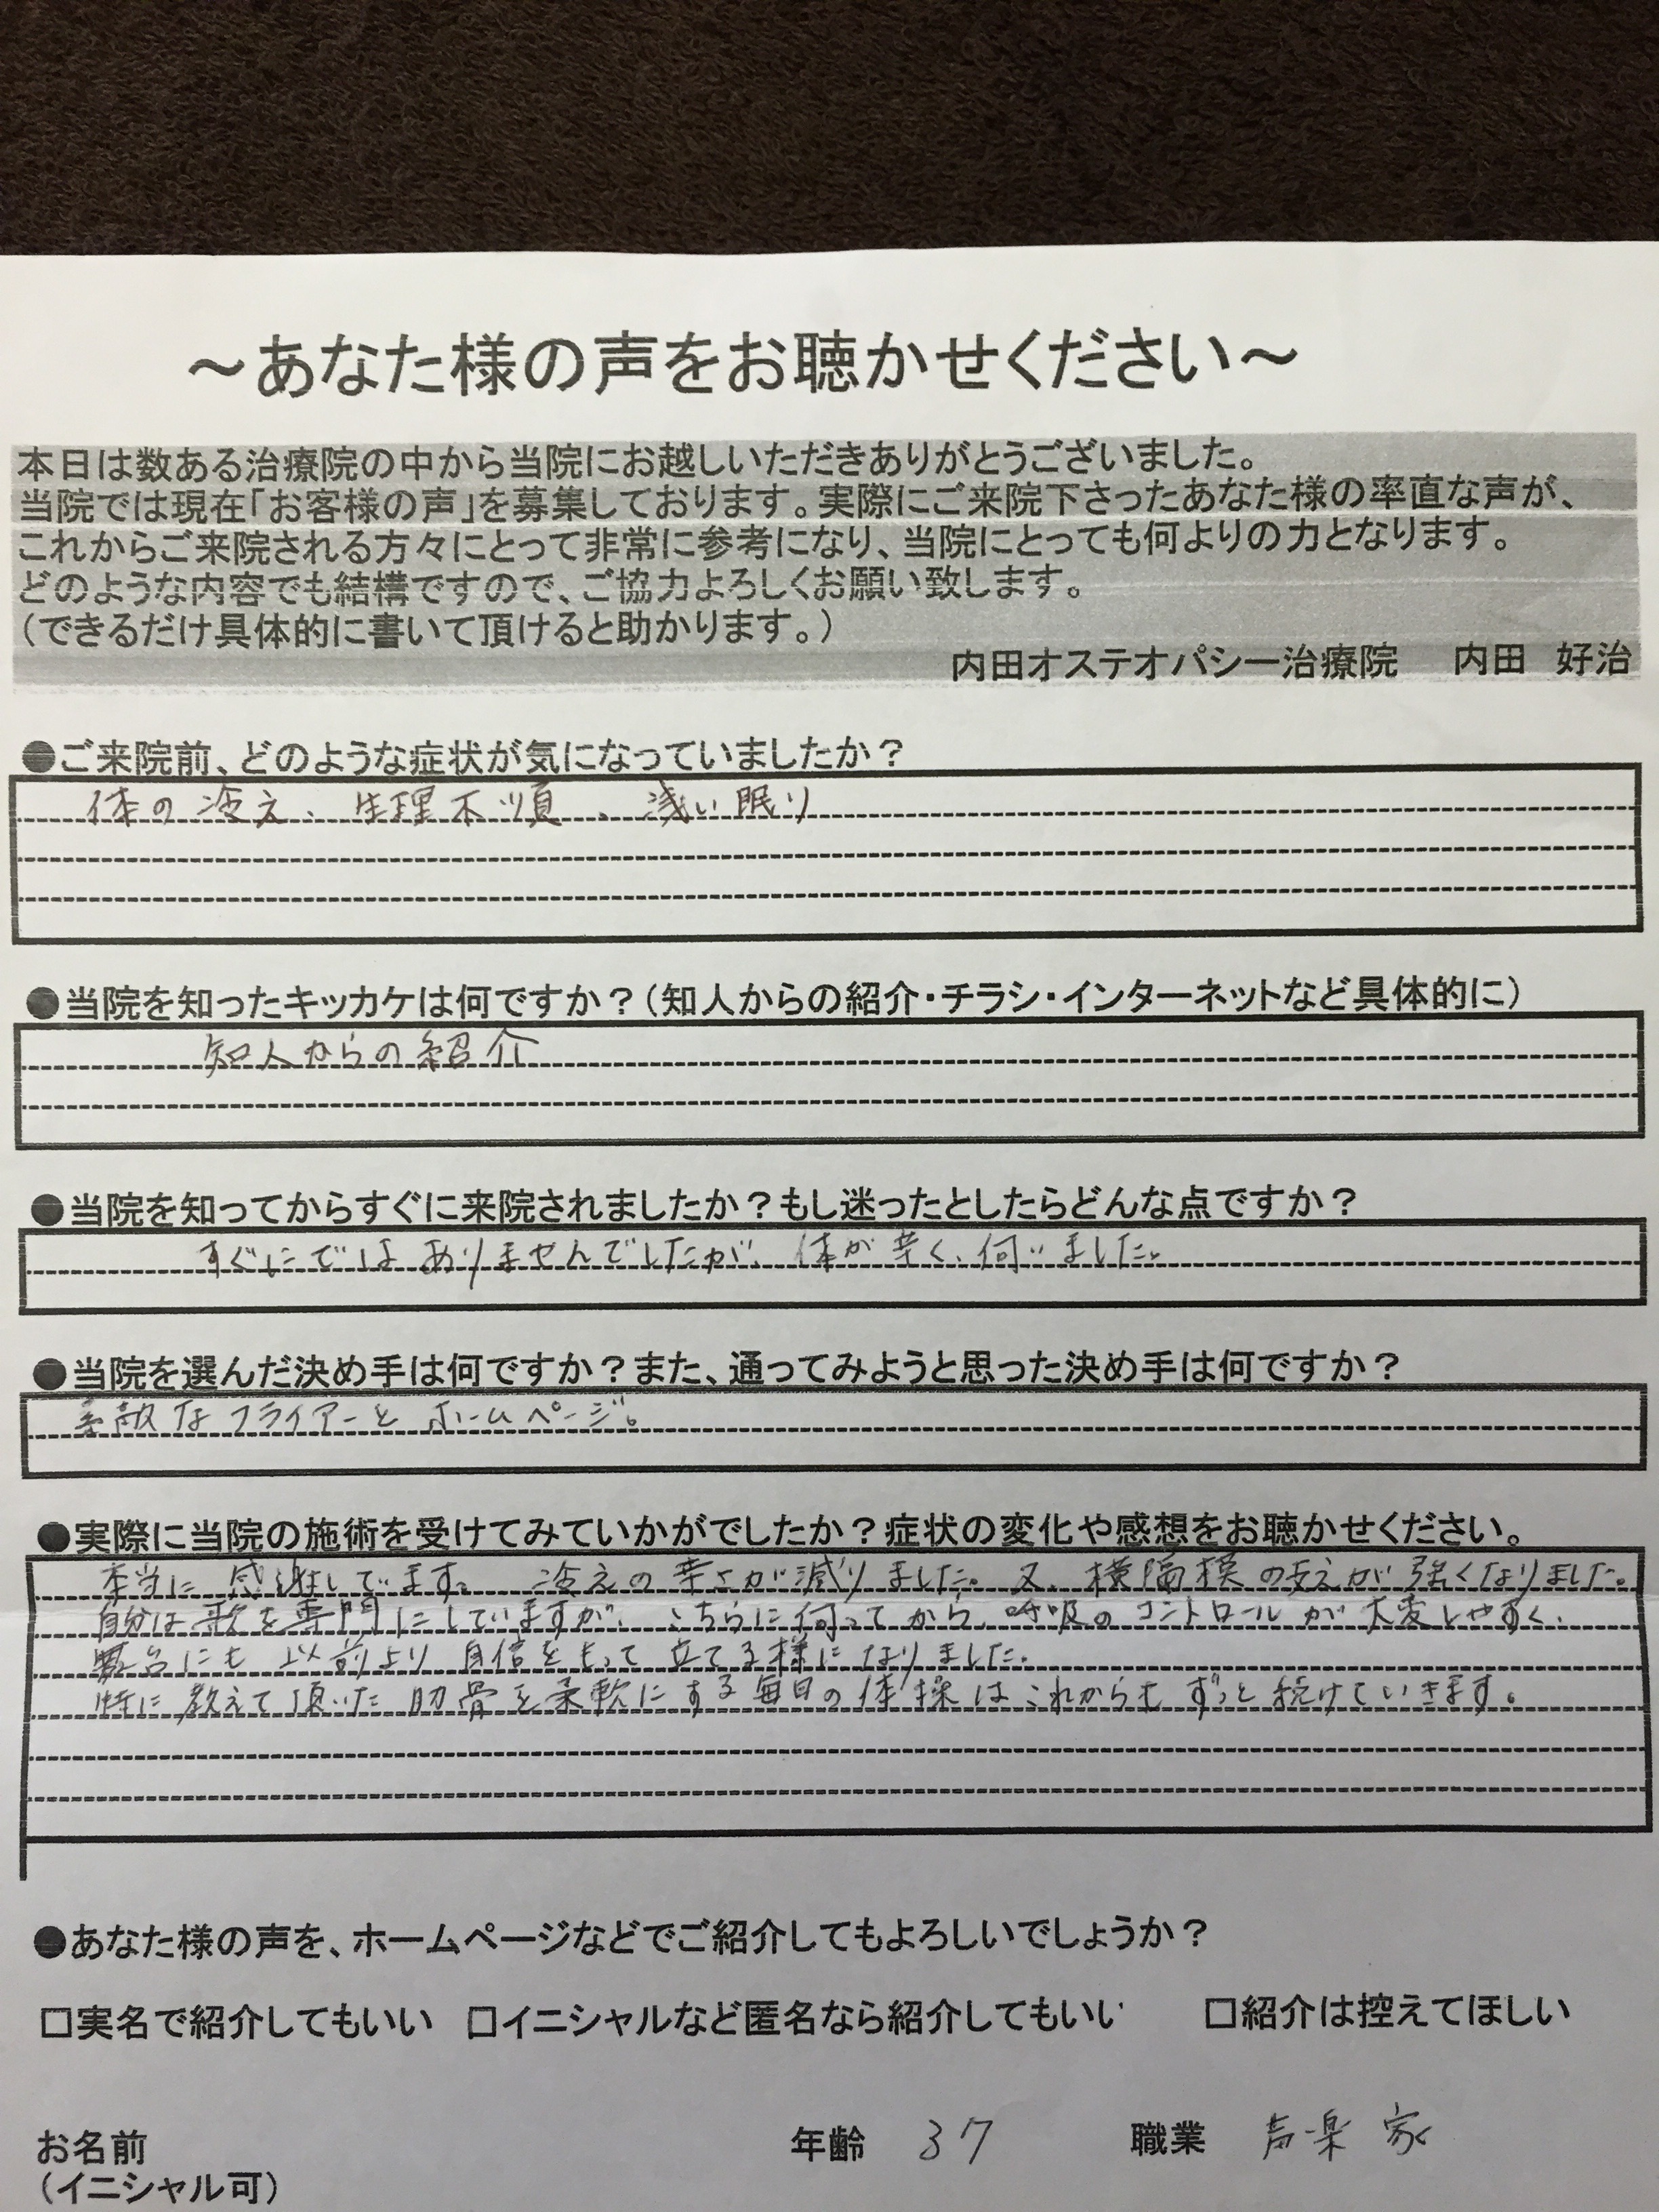 ～あなた様の声をお聴かせください～
本日は数ある治療院の中から当院にお越しいただきありがとうございました。
当院では現在「お客様の声」を募集しております。実際にご来院下さったあなた様の率直な声が、
これからご来院される方々にとって非常に参考になり、当院にとっても何よりの力となります。
どのような内容でも結構ですので、ご協力よろしくお願い致します。
（できるだけ具体的に書いて頂けると助かります。）
内田オステオパシー治療院　内田　好治
●ご来院前、どのような症状が気になっていましたか？
体の冷え、生理不順、浅い眠り
●当院を知ったキッカケは何ですか？（知人からの紹介・チラシ・インターネットなど具体的に）
知人からの紹介
●当院を知ってからすぐに来院されましたか？もし迷ったとしたらどんな点ですか？
すぐにではありませんでしたが、体が辛く、伺いました。
●当院を選んだ決め手は何ですか？また、通ってみようと思った決め手は何ですか？
素敵なフライアーとホームページ。
●実際に当院の施術を受けてみていかがでしたか？症状の変化や感想をお聴かせください。
本当に感謝してます。冷えの辛さが減りました。又、横隔模の支えが強くなりました。
自分は歌を専門にしていますが、こちらに伺ってから、呼吸のコントロールが大変しやすく、
舞台にも以前より自信をもって立てる様になりました。
特に教えて頂いた肋骨を柔軟にする毎日の体操はこれからもずっと続けていきます。
●あなた様の声を、ホームページなどでご紹介してもよろしいでしょうか？
□実名で紹介してもいい　□イニシャルなど匿名なら紹介してもいい　□紹介は控えてほしい
お名前　年齢　37　職業　声楽家
（イニシャル可）